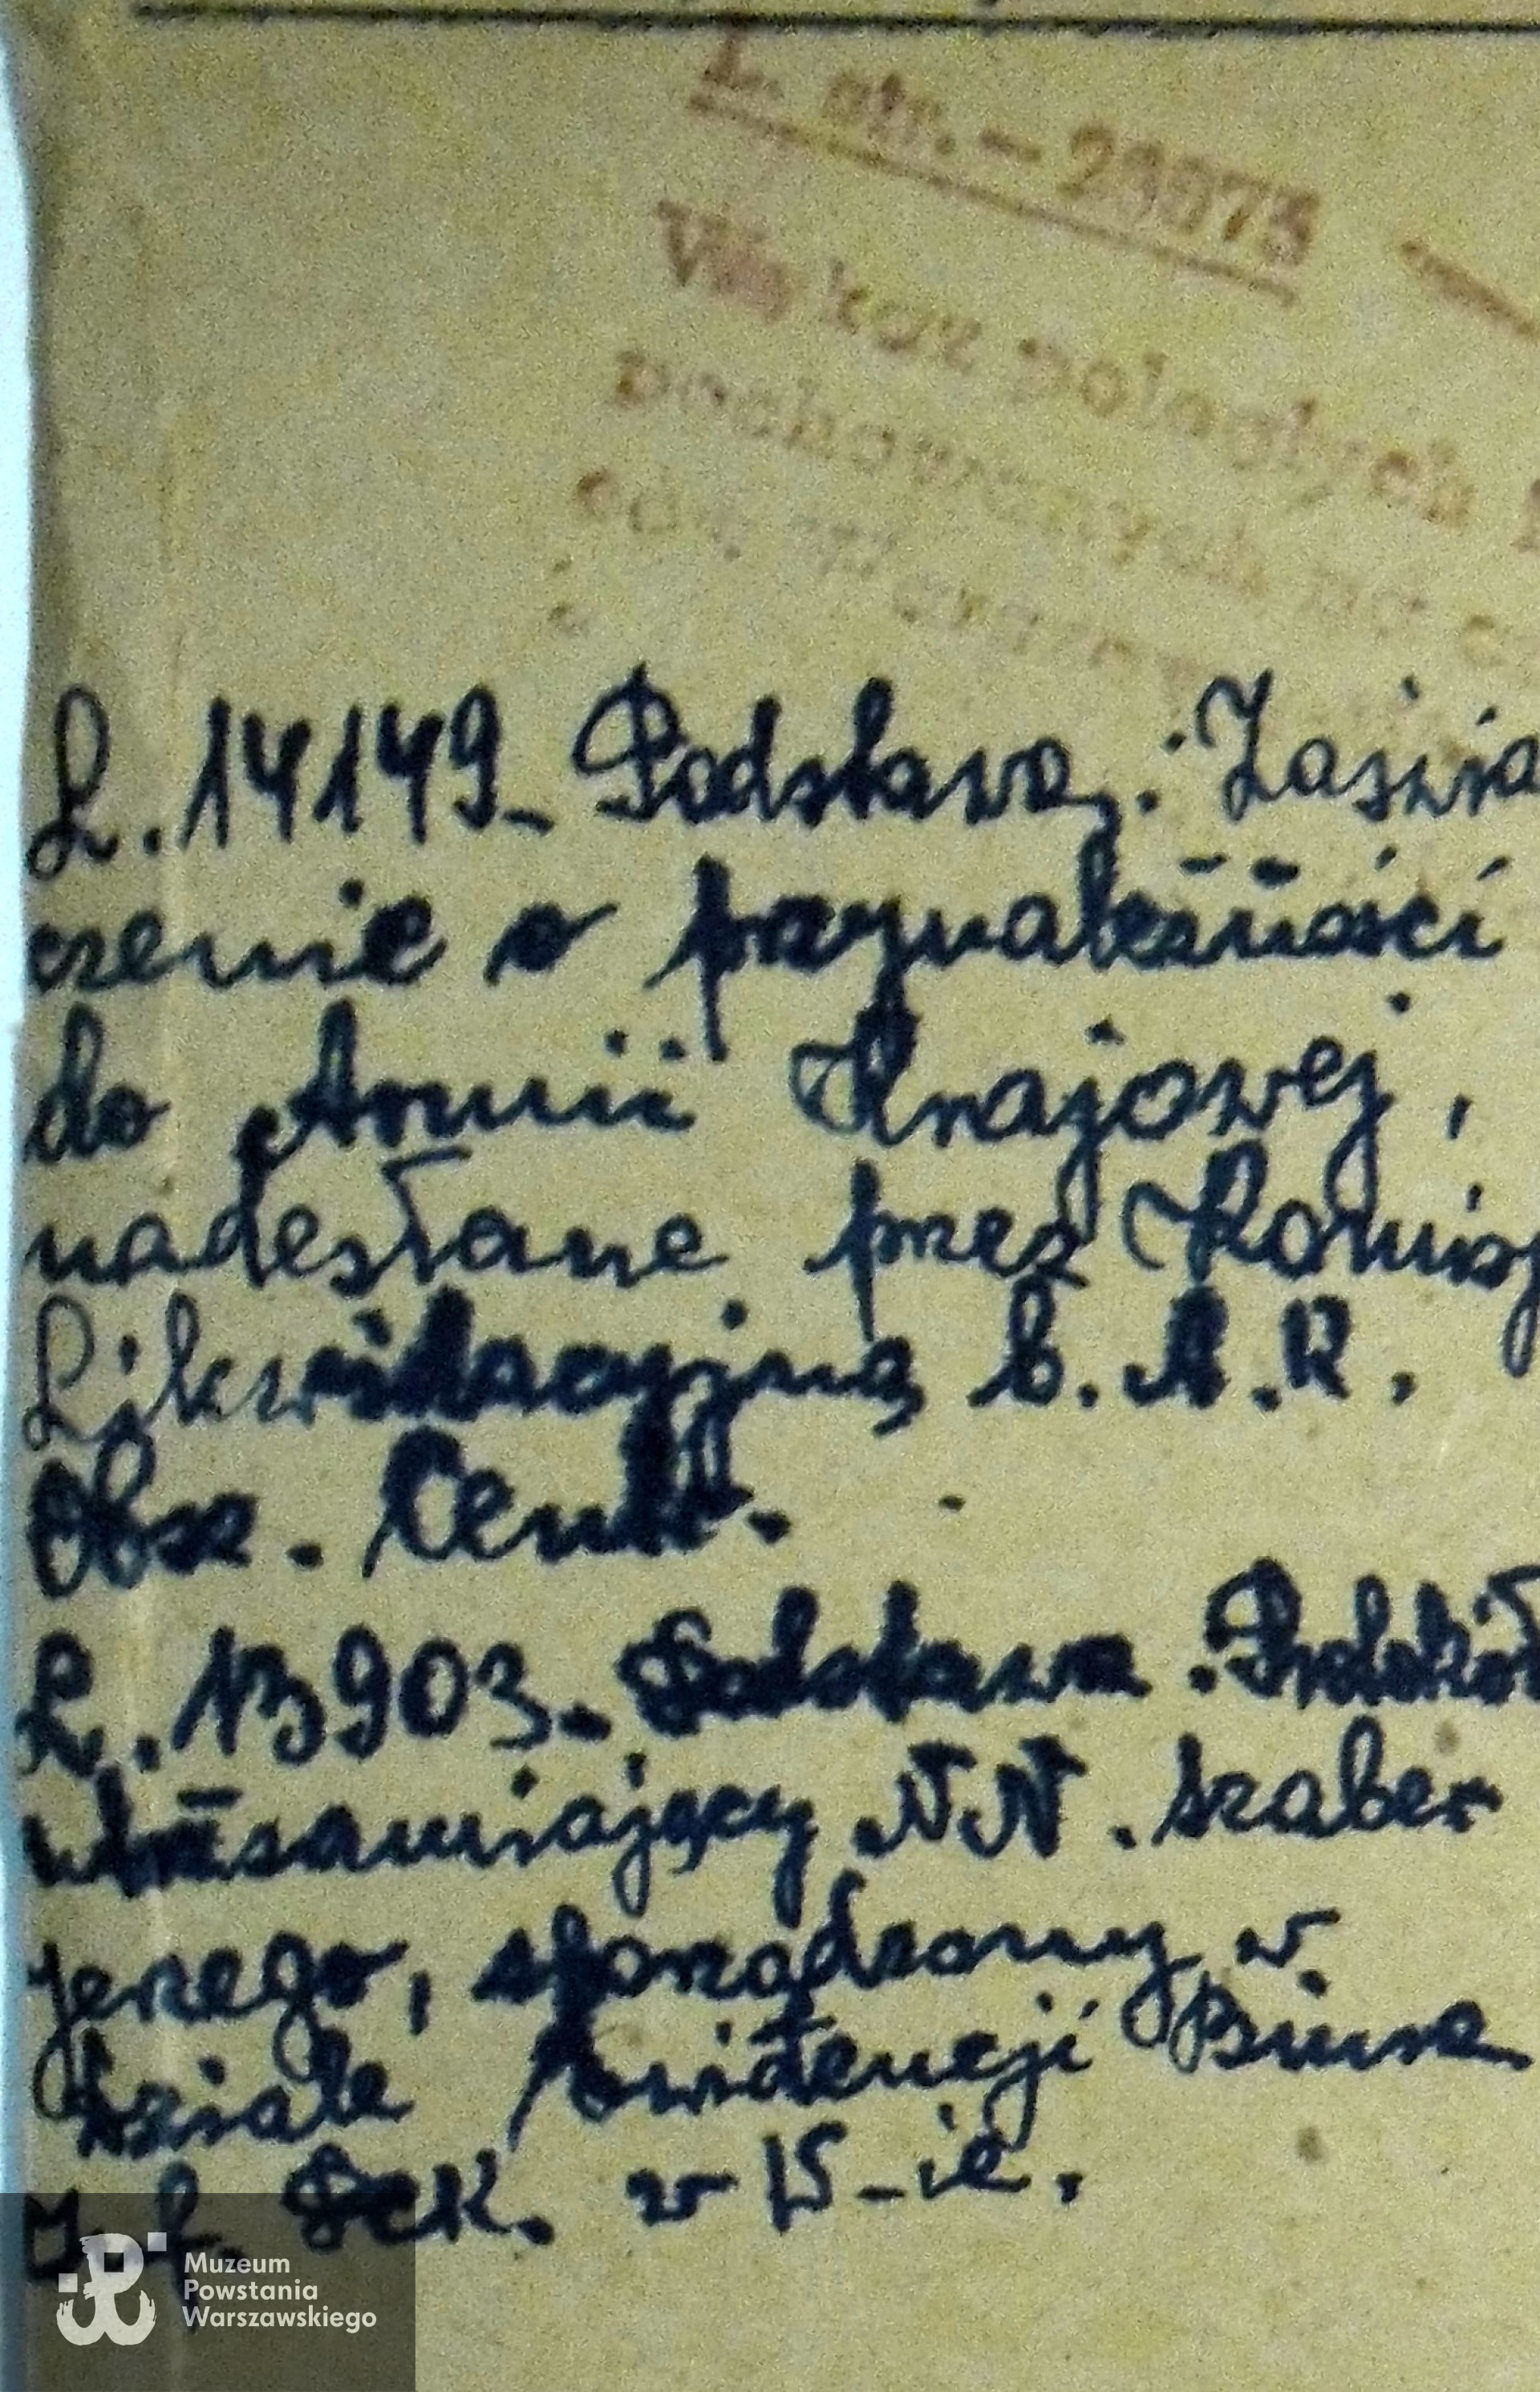 L. str. - 23873
Wykaz poległych
pochowanych na
L. 14149 - Podstawa: Zaświa
czenie o przynależności
do Armii Krajowej,
nadesłane przez Komisj
Likwidacyjną b. A.K.
Obsz. Centr.
L. 13903. Podstawa. Protokół
utożsamiający N.N. szaber
Jerzego, sporządzony w
Dziale Ewidencji Biura
I. P. Sek. w 15-ie.
Muzeum
Powstania
Warszawskiego